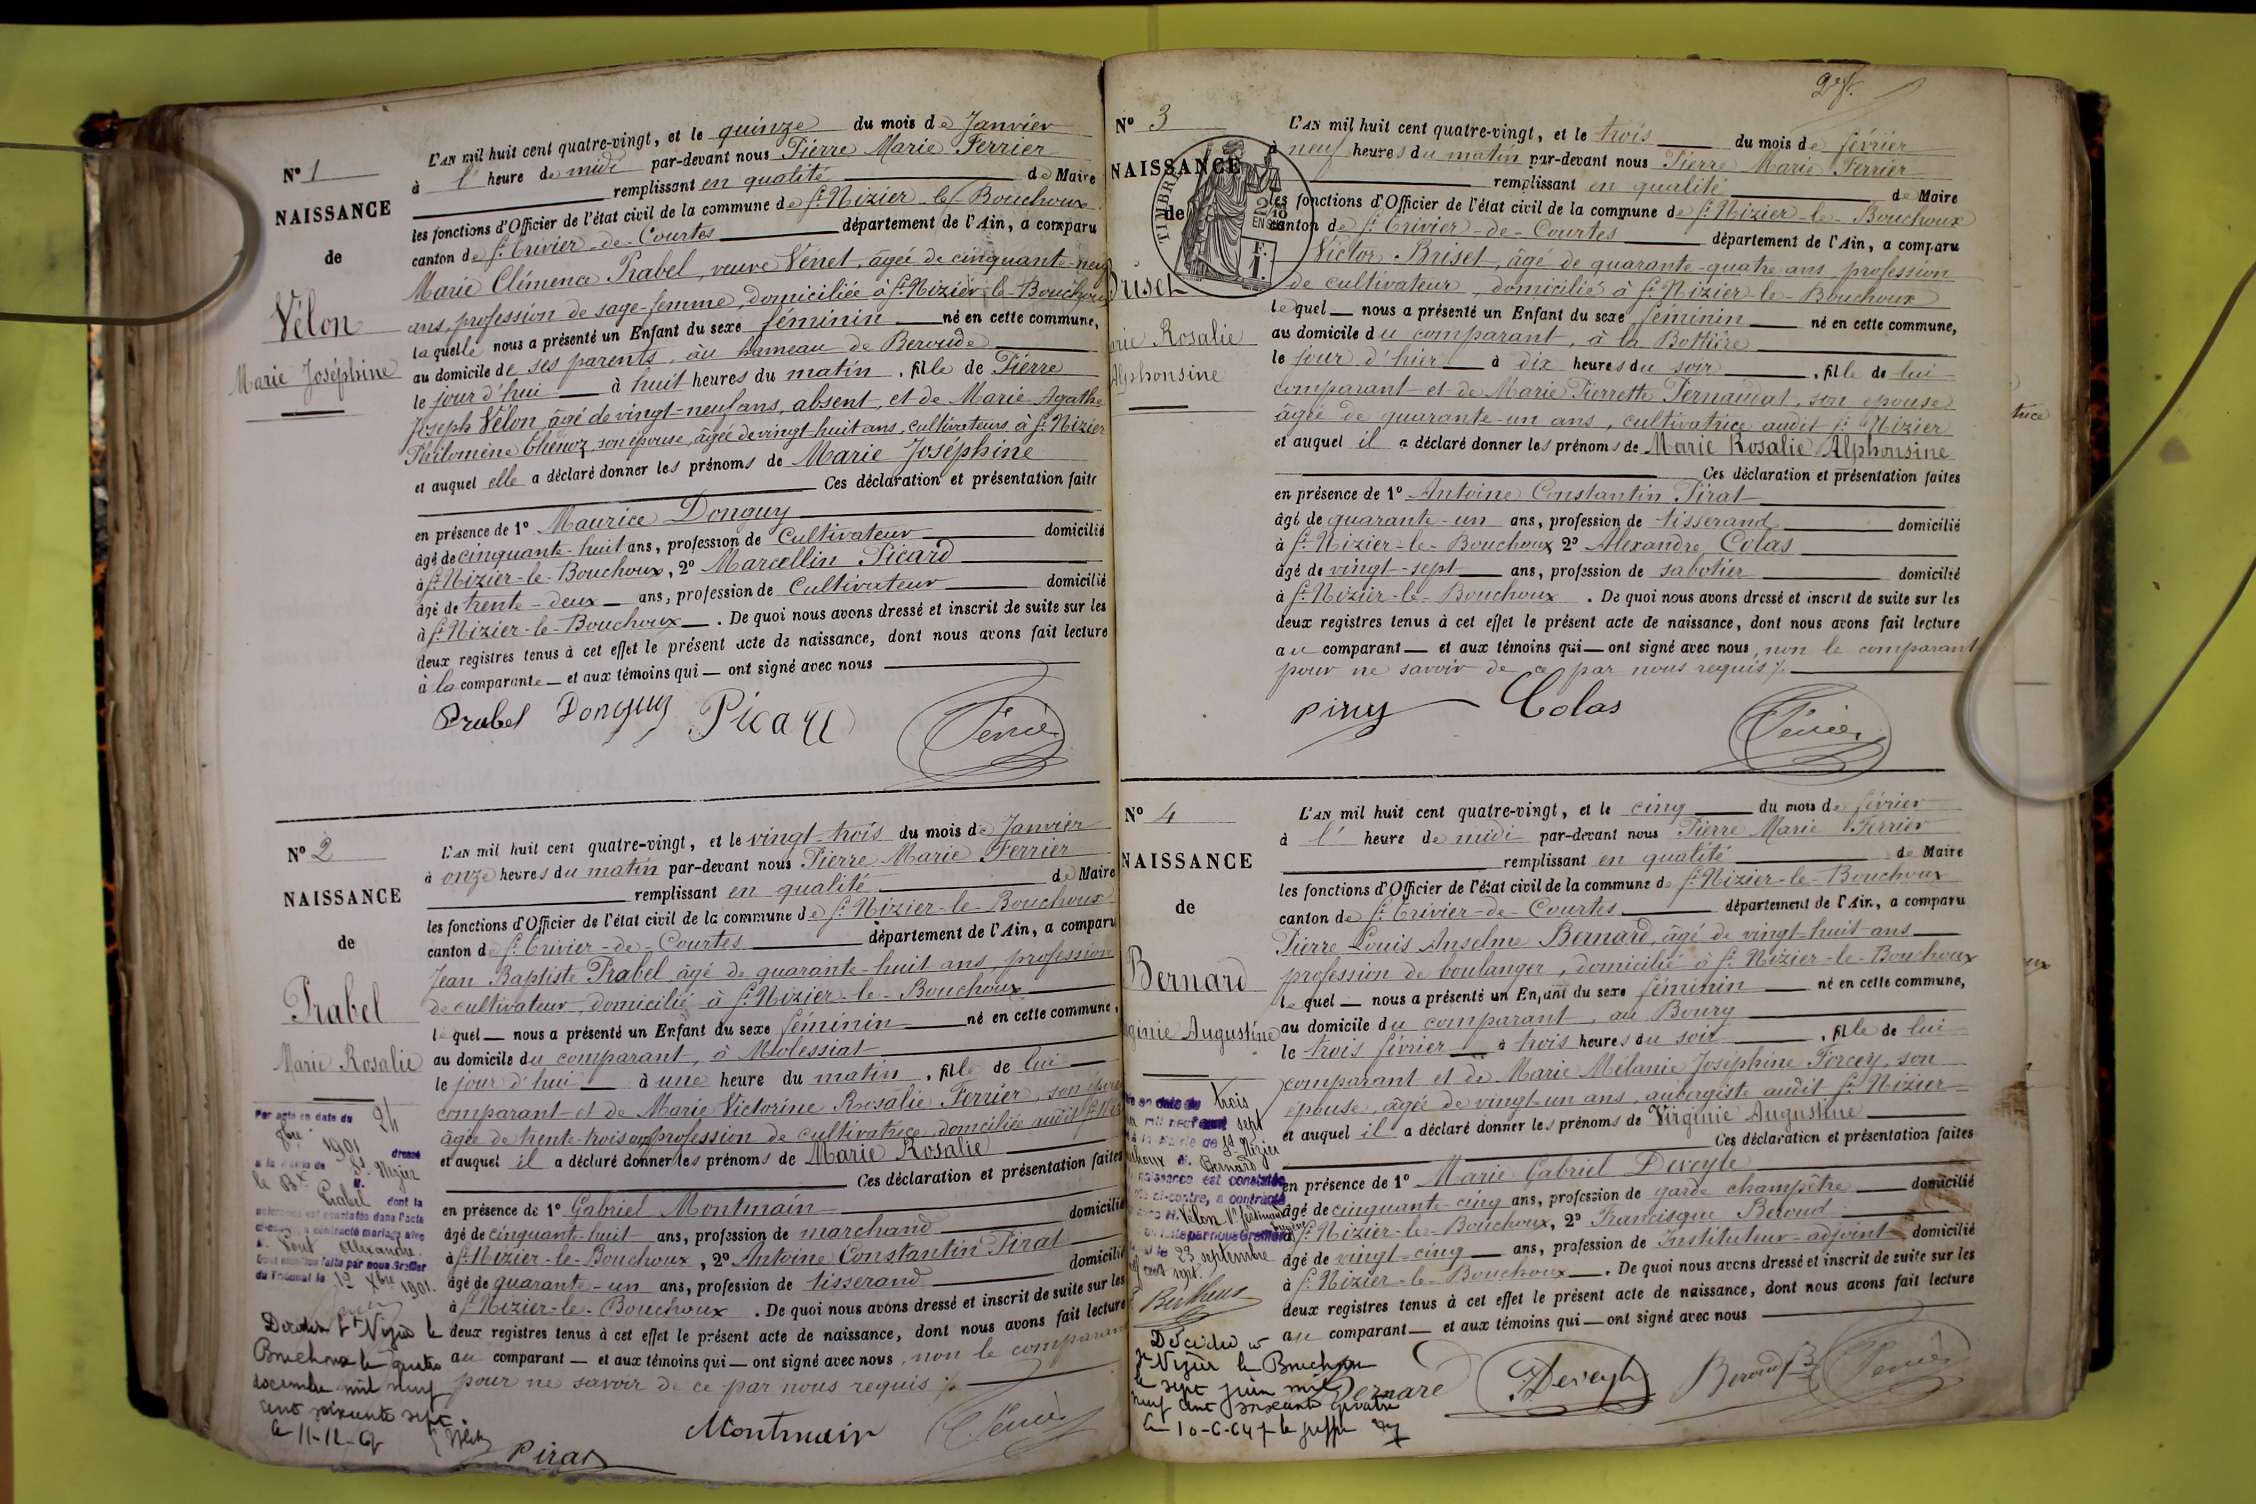 Nº 1
NAISSANCE
de
Vélon
Marie Joséphine
L'AN mil huit cent quatre-vingt, et le quinze du mois de Janvier
à l' heure de midi par-devant nous Pierre Marie Ferrier
remplissant en qualité de Maire
les fonctions d'Officier de l'état civil de la commune de St Nizier-le-Bouchoux
canton de St Trivier-de-Courtes département de l'Ain, a comparu
Marie Clémence Prabel, veuve Venet, âgée de cinquante-neuf
ans, profession de sage-femme, domiciliée à St Nizier-le-Bouchoux
laquelle nous a présenté un Enfant du sexe féminin né en cette commune,
au domicile de ses parents, au hameau de Beroude
le jour d'hui à huit heures du matin, fille de Pierre
Joseph Vélon, âgé de vingt-neuf ans, absent, et de Marie Agathe
Philomène Chénoz, son épouse, âgée de vingt-huit ans, cultivateurs à St Nizier
et auquel elle a déclaré donner les prénoms de Marie Joséphine
Ces déclaration et présentation faites
en présence de 1º Maurice Donguy
âgé de cinquante-huit ans, profession de Cultivateur domicilié
à St Nizier-le-Bouchoux, 2º Marcellin Picard
âgé de trente-deux ans, profession de Cultivateur domicilié
à St Nizier-le-Bouchoux. De quoi nous avons dressé et inscrit de suite sur les
deux registres tenus à cet effet le présent acte de naissance, dont nous avons fait lecture
à la comparante et aux témoins qui ont signé avec nous
Prabel Donguy Picard Ferrier
Nº 2
NAISSANCE
de
Prabel
Marie Rosalie
L'AN mil huit cent quatre-vingt, et le vingt-trois du mois de Janvier
à onze heures du matin par-devant nous Pierre Marie Ferrier
remplissant en qualité de Maire
les fonctions d'Officier de l'état civil de la commune de St Nizier-le-Bouchoux
canton de St Trivier-de-Courtes département de l'Ain, a comparu
Jean Baptiste Prabel, âgé de quarante-huit ans, profession
de cultivateur, domicilié à St Nizier-le-Bouchoux
lequel nous a présenté un Enfant du sexe féminin né en cette commune,
au domicile du comparant, à Molessiat
le jour d'hui à une heure du matin, fille de lui
comparant et de Marie Victorine Rosalie Ferrier, son épouse
âgée de trente-trois ans, profession de cultivatrice, domiciliée audit St Nizier
et auquel il a déclaré donner les prénoms de Marie Rosalie
Ces déclaration et présentation faites
en présence de 1º Gabriel Montmain domicilié
âgé de cinquante-huit ans, profession de marchand
à St Nizier-le-Bouchoux, 2º Antoine Constantin Pirat
âgé de quarante-un ans, profession de tisserand domicilié
à St Nizier-le-Bouchoux. De quoi nous avons dressé et inscrit de suite sur les
deux registres tenus à cet effet le présent acte de naissance, dont nous avons fait lecture
au comparant et aux témoins qui ont signé avec nous, non le comparant
pour ne savoir de ce par nous requis
Montmain Ferrier
Pirat
Par acte en date du 24
9bre 1901 dressé
à la Mairie de St Nizier
le Bx M.
Prabel dont la
naissance est constatée dans l'acte
ci-contre, a contracté mariage avec
M. Pont Alexandre.
Dont mention faite par nous Greffier
du Tribunal le 12 Xbre 1901.
Décédée St Nizier le
Bouchoux le quatre
décembre mil neuf
cent soixante sept.
Le 11-12-67
Nº 3
NAISSANCE
de
Briset
Marie Rosalie
Alphonsine
L'AN mil huit cent quatre-vingt, et le trois du mois de février
à neuf heures du matin par-devant nous Pierre Marie Ferrier
remplissant en qualité de Maire
les fonctions d'Officier de l'état civil de la commune de St Nizier-le-Bouchoux
canton de St Trivier-de-Courtes département de l'Ain, a comparu
Victor Briset, âgé de quarante-quatre ans, profession
de cultivateur, domicilié à St Nizier-le-Bouchoux
lequel nous a présenté un Enfant du sexe féminin né en cette commune,
au domicile du comparant, à la Bottière
le jour d'hier à dix heures du soir, fille de lui
comparant et de Marie Pierrette Pernaudat, son épouse
âgée de quarante-un ans, cultivatrice audit St Nizier
et auquel il a déclaré donner les prénoms de Marie Rosalie Alphonsine
Ces déclaration et présentation faites
en présence de 1º Antoine Constantin Pirat
âgé de quarante-un ans, profession de tisserand domicilié
à St Nizier-le-Bouchoux 2º Alexandre Colas
âgé de vingt-sept ans, profession de sabotier domicilié
à St Nizier-le-Bouchoux. De quoi nous avons dressé et inscrit de suite sur les
deux registres tenus à cet effet le présent acte de naissance, dont nous avons fait lecture
au comparant et aux témoins qui ont signé avec nous, non le comparant
pour ne savoir de ce par nous requis
Colas Ferrier
Nº 4
NAISSANCE
de
Bernard
Virginie Augustine
L'AN mil huit cent quatre-vingt, et le cinq du mois de février
à l' heure de midi par-devant nous Pierre Marie Ferrier
remplissant en qualité de Maire
les fonctions d'Officier de l'état civil de la commune de St Nizier-le-Bouchoux
canton de St Trivier-de-Courtes département de l'Ain, a comparu
Pierre Louis Anselme Bernard, âgé de vingt-huit ans
profession de boulanger, domicilié à St Nizier-le-Bouchoux
lequel nous a présenté un Enfant du sexe féminin né en cette commune,
au domicile du comparant, au Bourg
le trois février à trois heures du soir, fille de lui
comparant et de Marie Mélanie Joséphine Forcey, son
épouse, âgée de vingt-un ans, aubergiste audit St Nizier
et auquel il a déclaré donner les prénoms de Virginie Augustine
Ces déclaration et présentation faites
en présence de 1º Marie Gabriel Deveyle
âgé de cinquante-cinq ans, profession de garde champêtre domicilié
à St Nizier-le-Bouchoux, 2º Francisque Beroud
âgé de vingt-cinq ans, profession de Instituteur-adjoint domicilié
à St Nizier-le-Bouchoux. De quoi nous avons dressé et inscrit de suite sur les
deux registres tenus à cet effet le présent acte de naissance, dont nous avons fait lecture
au comparant et aux témoins qui ont signé avec nous
Bernard Deveyle Beroud Ferrier
en date du trois
mil neuf cent sept
de St Nizier
Bouchoux M. Bernard
naissance est constatée
ci-contre, a contracté
M. Vélon
par nous Greffier
le 23 septembre
cent sept.
Décédée à
St Nizier le Bouchoux
le sept juin mil
neuf cent soixante quatre
Le 10-6-64 le greffier